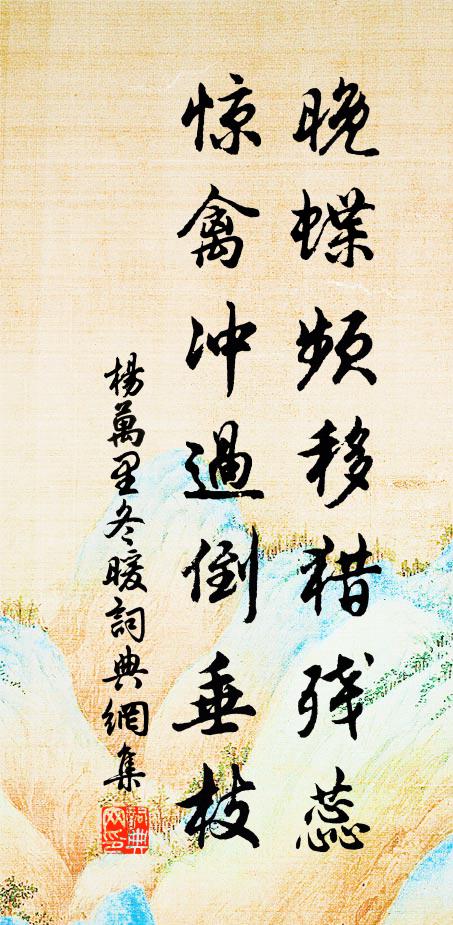 晚蝶频移猎残蕊
惊禽冲過倒垂枝
楊萬里冬暖詞典網集
詞典网印